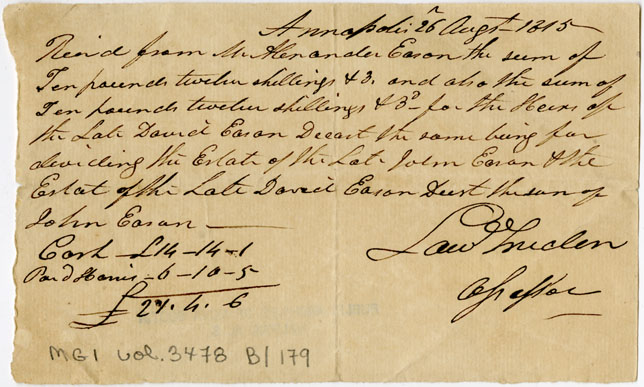 Annapolis 26 Augt 1815
Recd from Mr Alexander Eason the sum of
Ten pounds twelve shillings & 3. and also the sum of
Ten pounds twelve shillings & 3d for the Heirs of
the Late David Eason Decest the same being for
deviding the Estate of the Late John Eason & the
Estat of the Late David Eason Decst the son of
John Eason
Cash - £14-14-1
Pard Harris - 6-10-5
£ 21. 4. 6
Assessor
MG1 vol. 3478 B/179